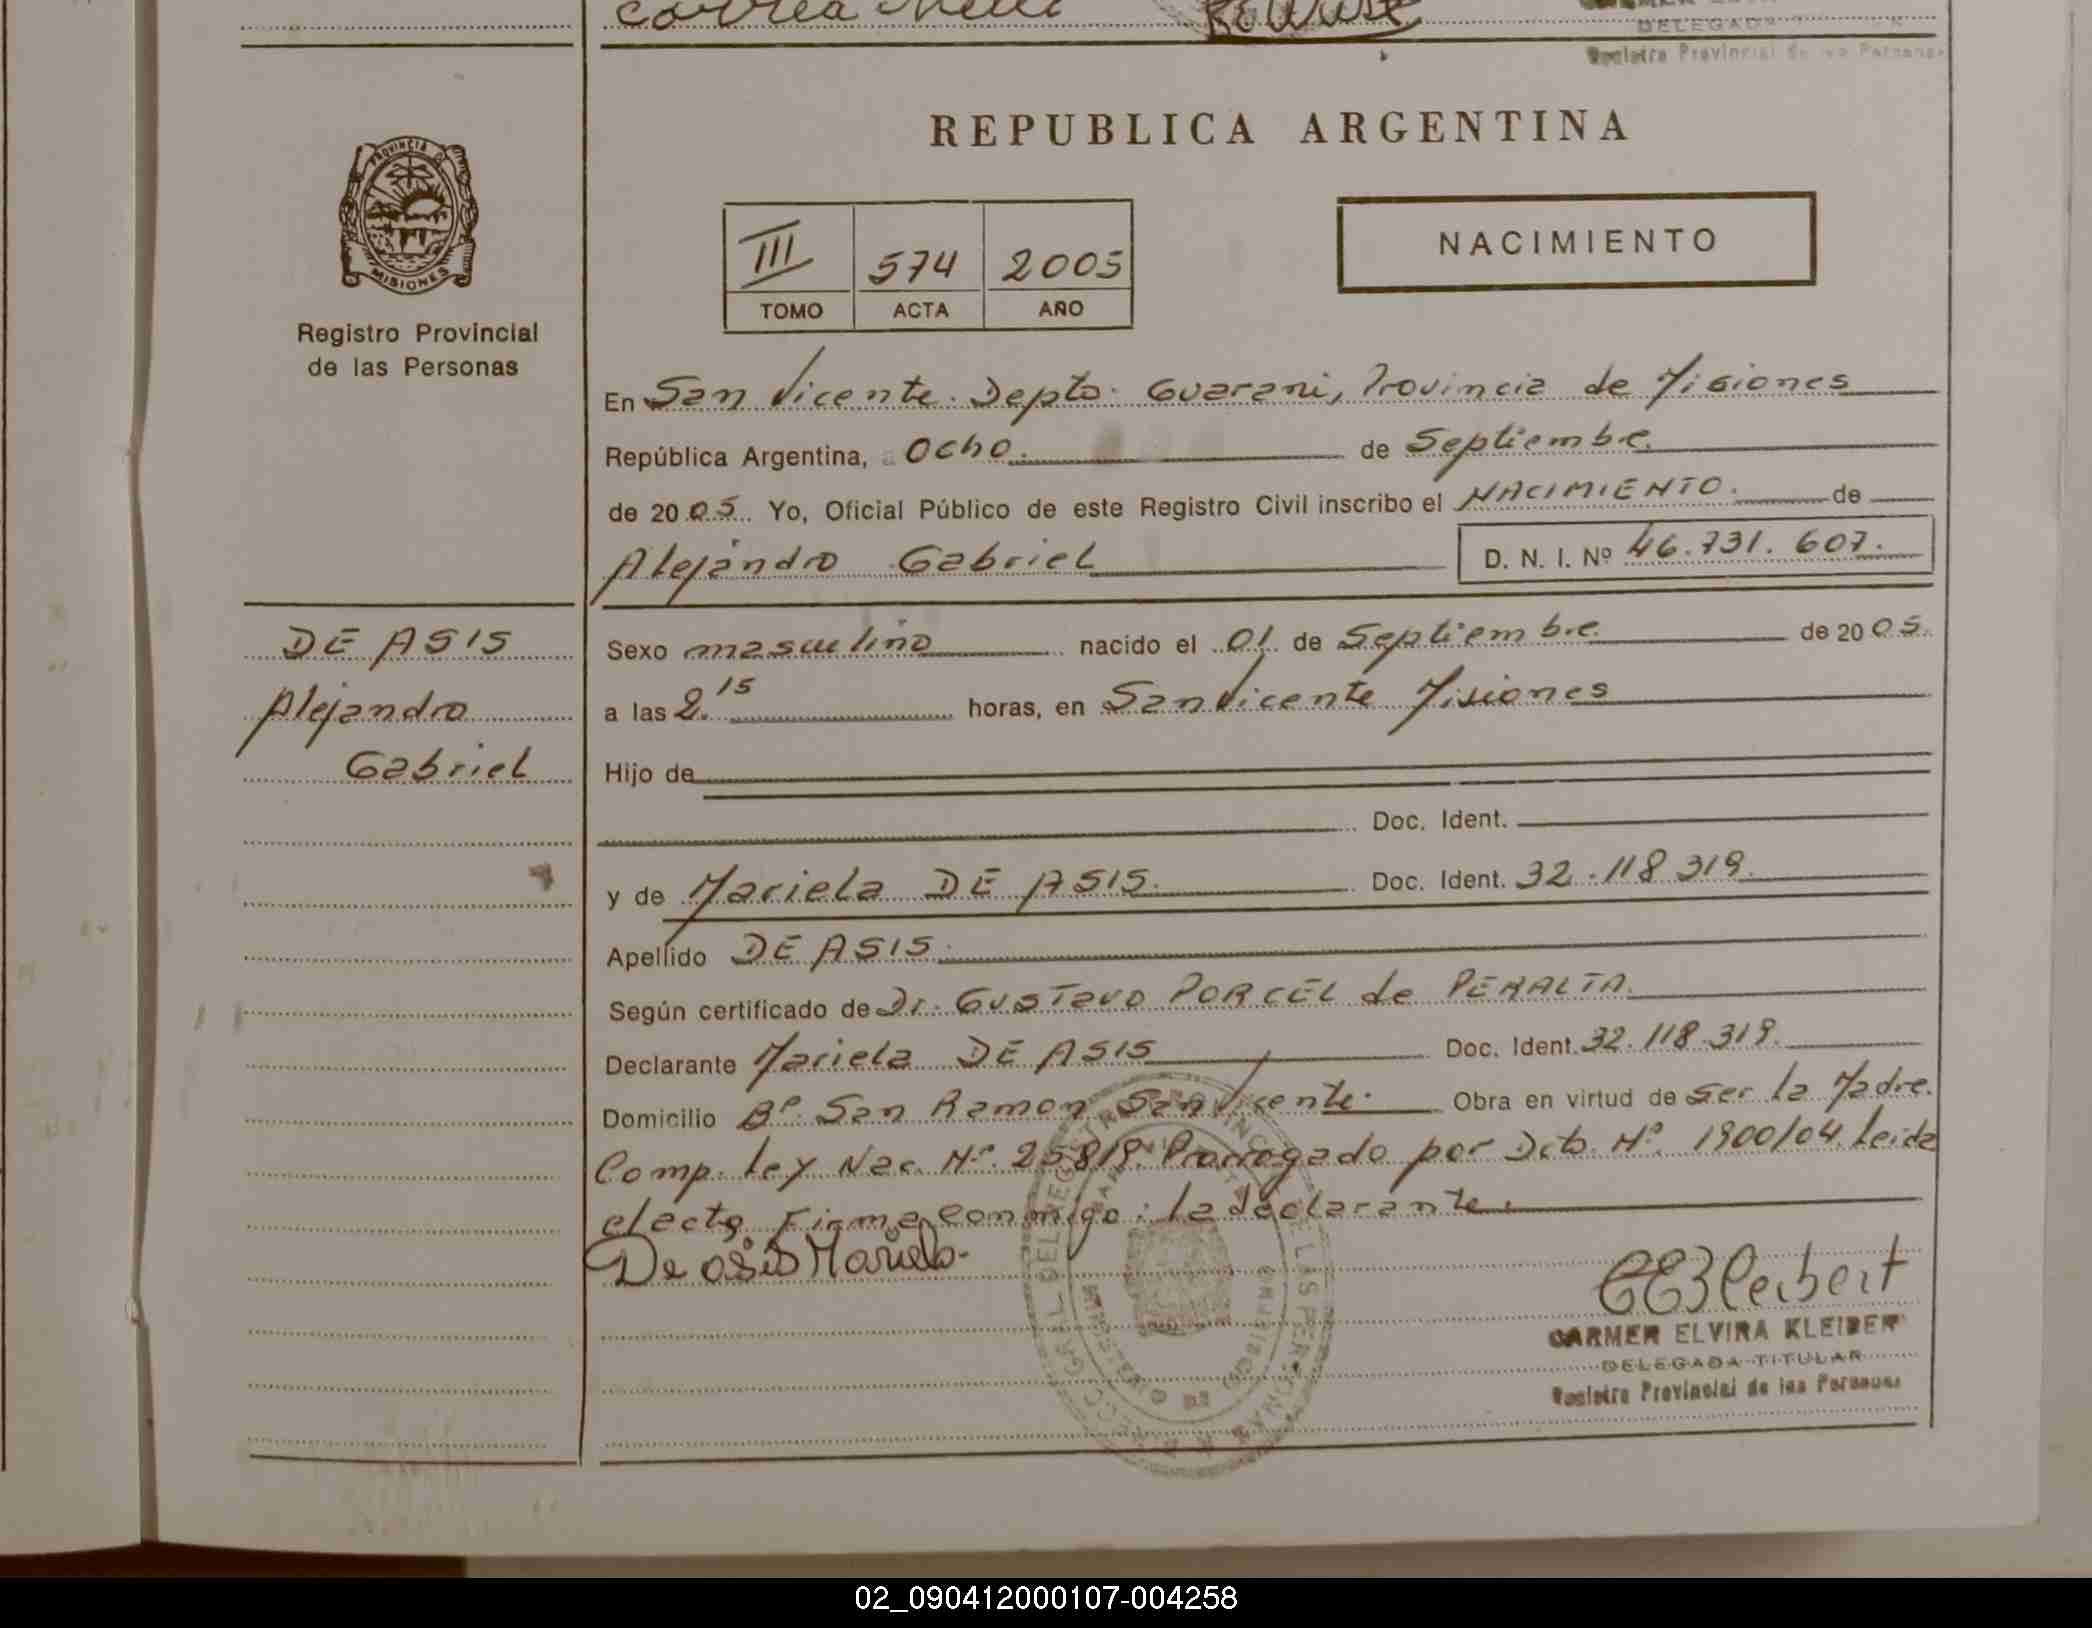 Correa
DELEGADA
Registro Provincial de las Personas
PROVINCIA DE
MISIONES
Registro Provincial
de las Personas
REPUBLICA ARGENTINA
III 574 2005
TOMO ACTA AÑO
NACIMIENTO
En San Vicente. Depto. Guarani, Provincia de Misiones
República Argentina, a Ocho. de Septiembre.
de 2005. Yo, Oficial Público de este Registro Civil inscribo el NACIMIENTO. de
Alejandro Gabriel
D. N. I. Nº 46.731.607.
DE ASIS
Alejandro
Gabriel
Sexo masculino nacido el 01 de Septiembre. de 2005.
a las 2.15 horas, en San Vicente Misiones
Hijo de
Doc. Ident.
y de Mariela DE ASIS. Doc. Ident. 32.118.319.
Apellido DE ASIS.
Según certificado de Dr. Gustavo PORCEL de PERALTA.
Declarante Mariela DE ASIS Doc. Ident. 32.118.319.
Domicilio Bº San Ramon San Vicente. Obra en virtud de ser la Madre.
Comp. Ley Nac. Nº. 25819. Prorrogado por Dcto. Nº. 1900/04. Leida
el acta, Firma conmigo: la declarante.
De asis Mariela.
CARMEN ELVIRA KLEIBER
DELEGADA TITULAR
Registro Provincial de las Personas
02_090412000107-004258